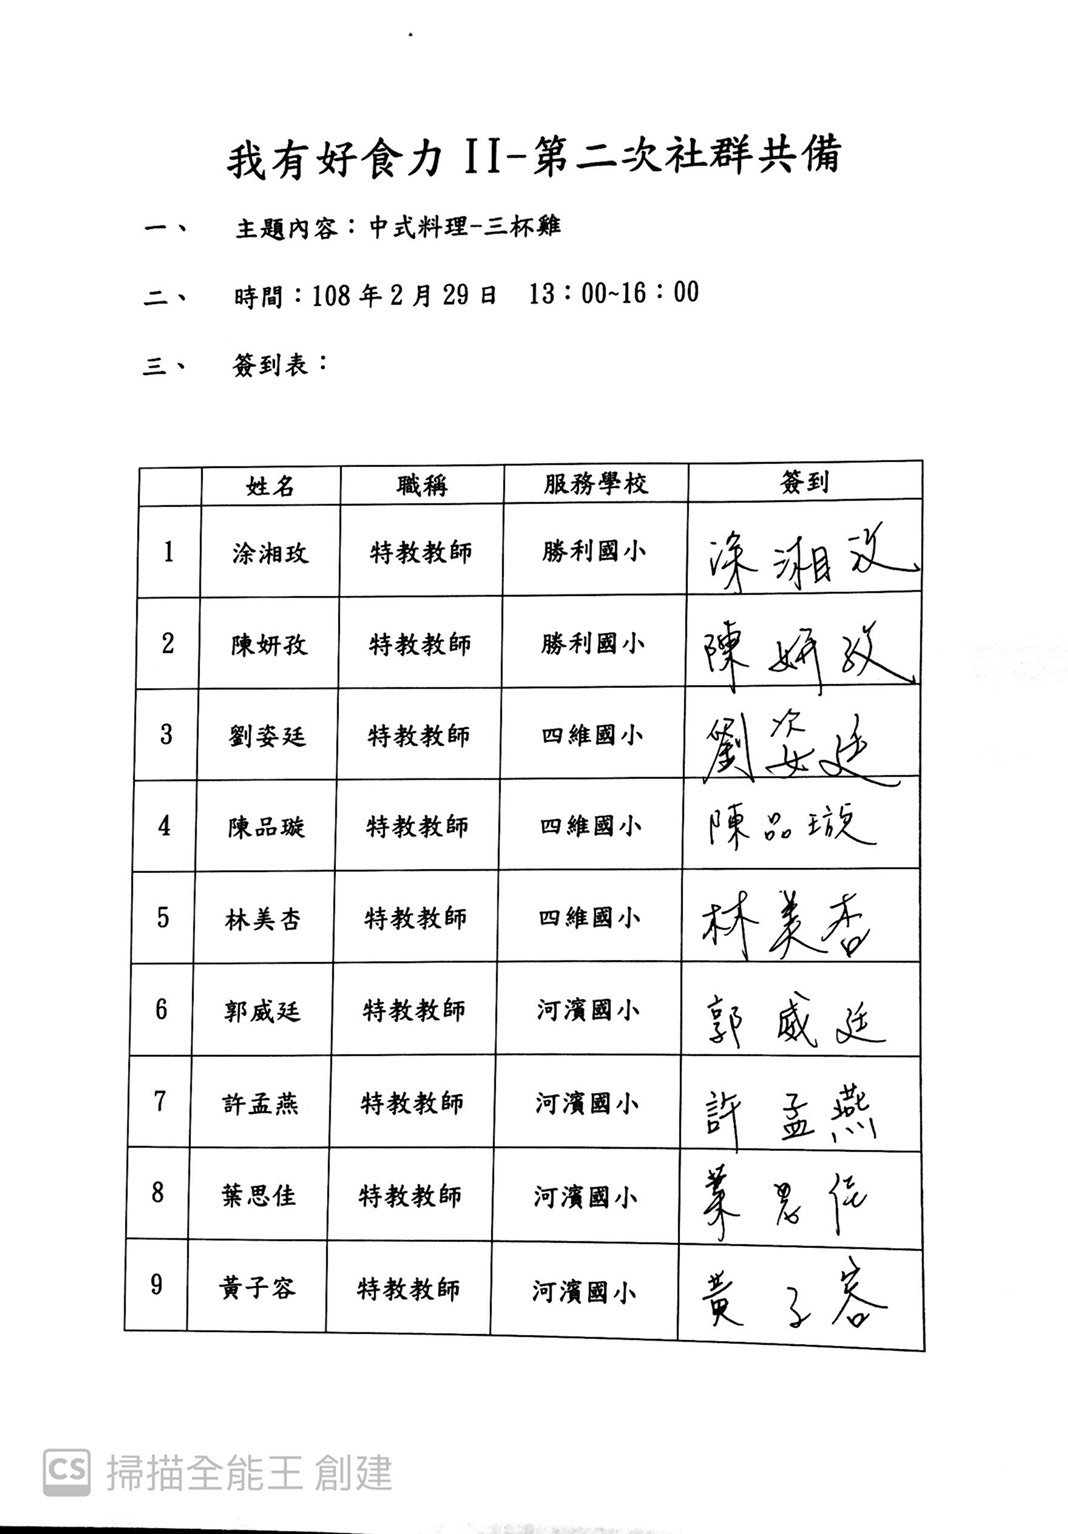 我有好食力 II-第二次社群共備
一、 主題內容：中式料理-三杯雞
二、 時間：108 年 2 月 29 日 13：00~16：00
三、 簽到表：
姓名 職稱 服務學校 簽到
1 涂湘玫 特教教師 勝利國小 涂湘玫
2 陳妍孜 特教教師 勝利國小 陳妍孜
3 劉姿廷 特教教師 四維國小 劉姿廷
4 陳品璇 特教教師 四維國小 陳品璇
5 林美杏 特教教師 四維國小 林美杏
6 郭威廷 特教教師 河濱國小 郭威廷
7 許孟燕 特教教師 河濱國小 許孟燕
8 葉思佳 特教教師 河濱國小 葉思佳
9 黃子容 特教教師 河濱國小 黃子容
CS 掃描全能王 創建